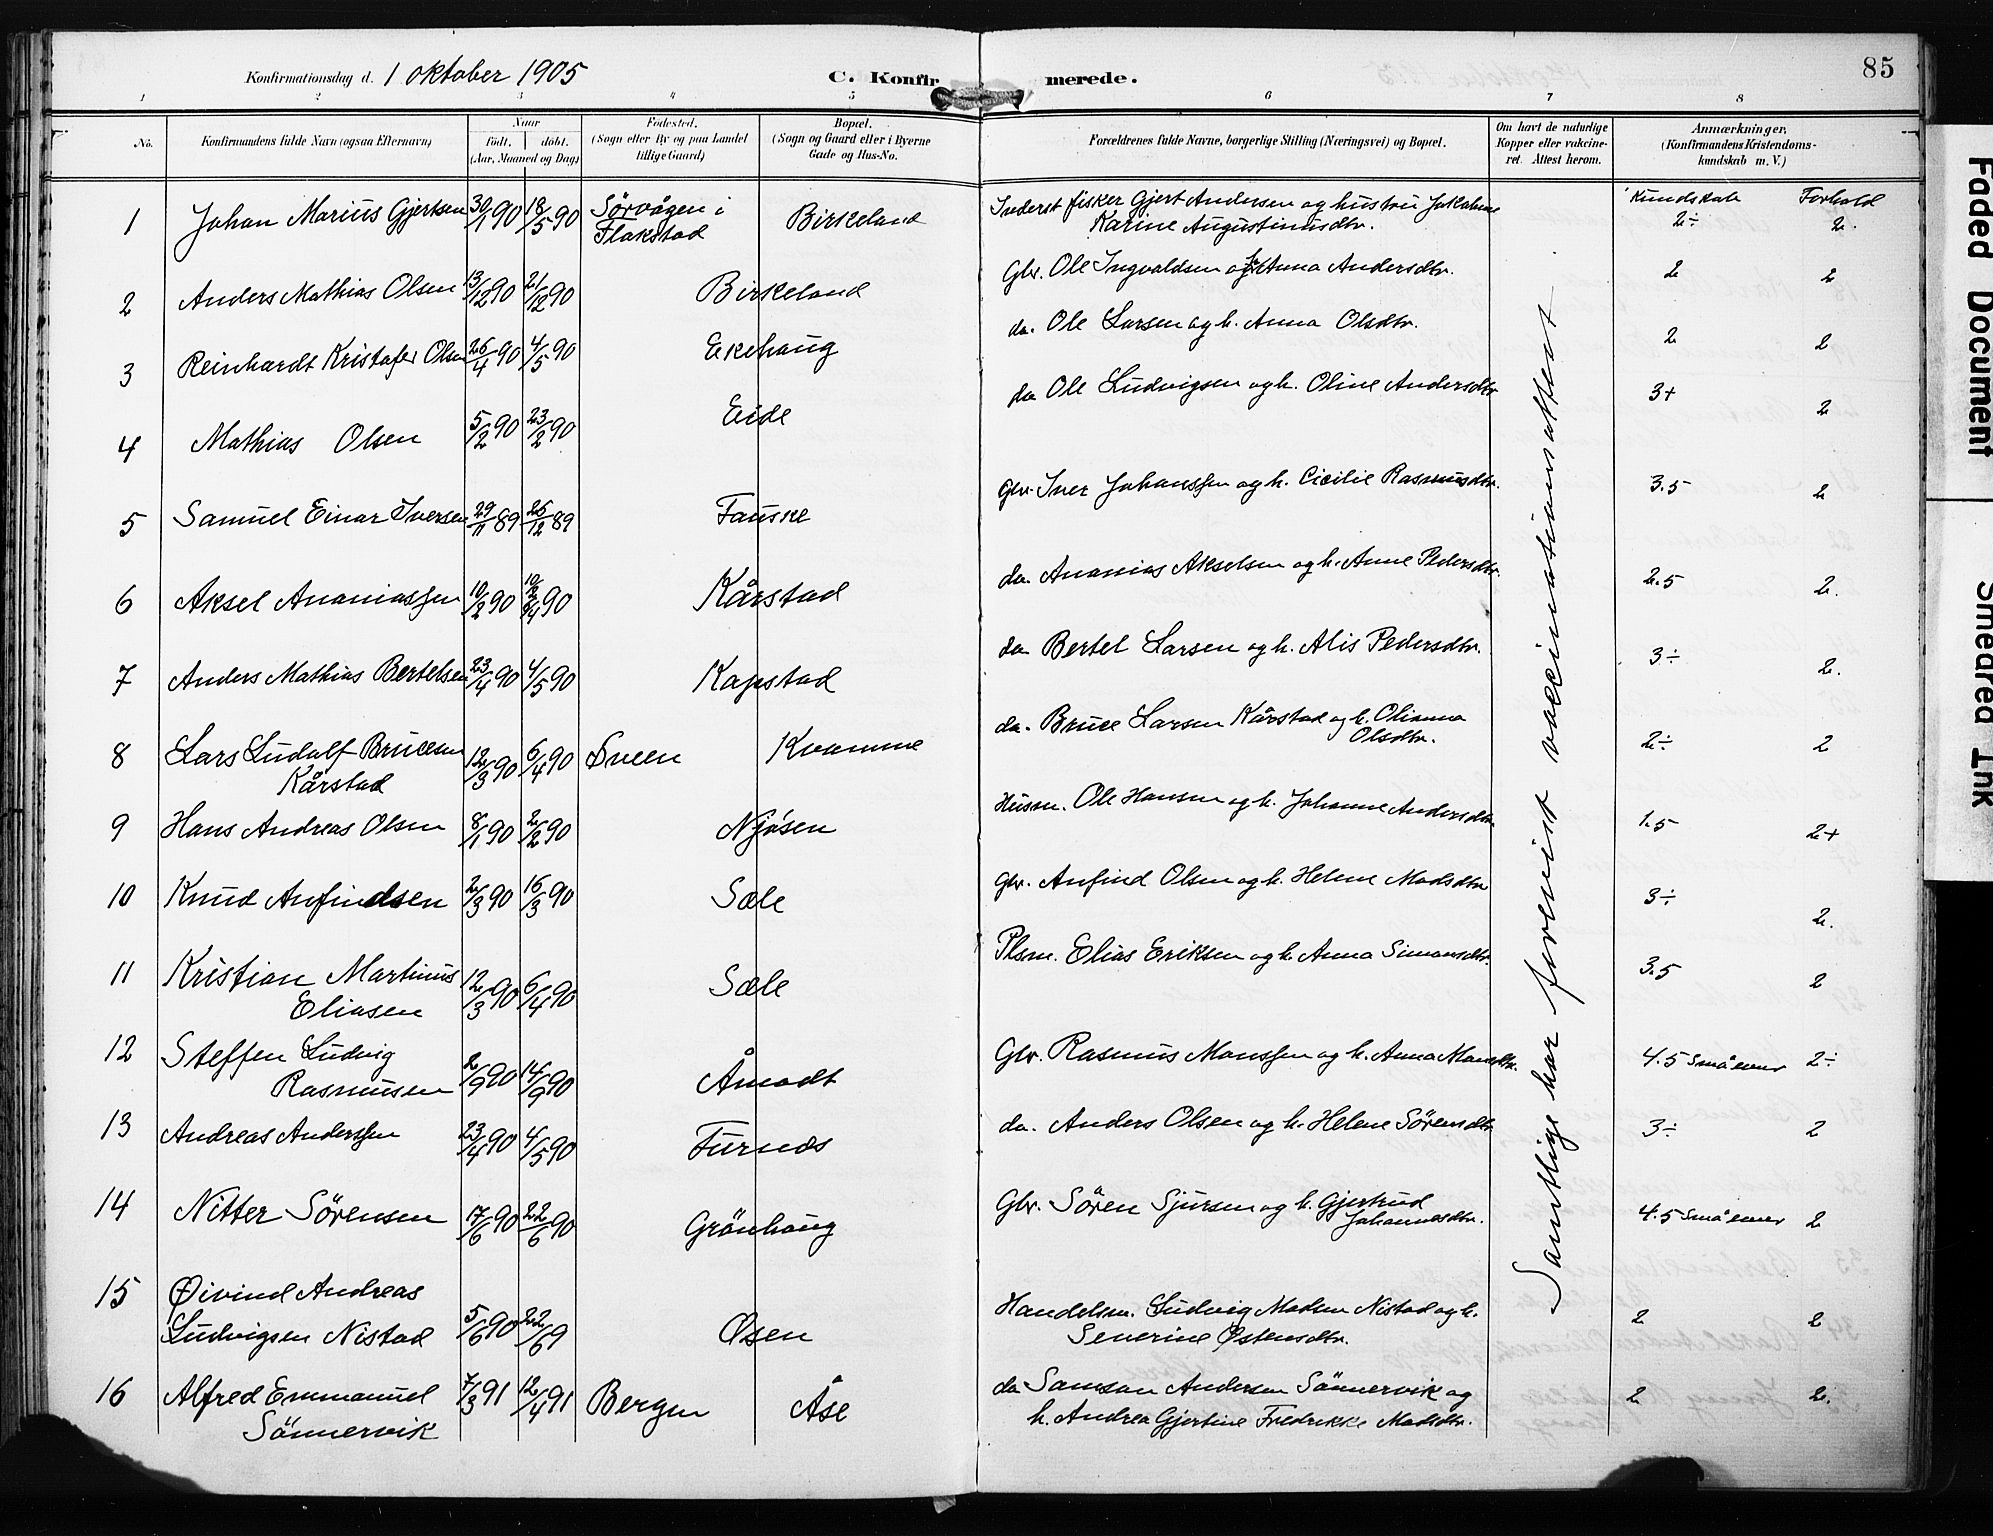 Konfirmationsdag d. 1 oktober 1905 C. Konfir merede. 85
1 2 3 4 5 6 7 8
No. Konfirmandens fulde Navn (ogsaa Efternavn) Naar født, døbt. (Aar, Maaned og Dag) Fødested. (Sogn eller By og paa Landet tillige Gaard) Bopæl. (Sogn og Gaard eller i Byerne Gade og Hus-No. Forældrenes fulde Navne, borgerlige Stilling (Næringsvei) og Bopæl. Om havt de naturlige Kopper eller vakcineret. Attest herom. Anmærkninger, (Konfirmandens Kristendomskundskab m. V.)
Kundskab Forhold
1 Johan Marius Gjertsen 30/1 90 18/5 90 Sörvågen i Flakstad Birkeland Inderst fisker Gjert Andersen og hustru Jakobine Karine Augustinusdtr. 2÷ 2.
2 Anders Mathias Olsen 13/12 90 21/12 90 Birkeland Gbr. Ole Ingvaldsen og h. Anna Andersdtr. 2 2
3 Reinhardt Kristofer Olsen 26/4 90 4/5 90 Ekehaug do. Ole Larsen og h. Anna Olsdtr. 2 2
4 Mathias Olsen 5/2 90 23/2 90 Eide do Ole Ludvigsen og h. Oline Andersdtr 3+ 2
5 Samuel Einar Iversen 29/11 89 26/12 89 Fauske Gbr. Iver Johanssen og h. Cicilie Rasmusdtr. 3.5 2
6 Aksel Ananiassen 10/2 90 90 Kårstad do. Ananias Akselsen og h. Anne Pedersdtr. 2.5 2.
7 Anders Mathias Bertelsen 23/4 90 4/5 90 Kapstad do Bertel Larsen og h. Alis Pedersdtr. 3÷ 2.
8 Lars Ludolf Brucesen Kårstad 12/3 90 6/4 90 Sveen Kvamme do. Bruce Larsen Kårstad og h. Olianna Olsdtr. 2÷ 2
9 Hans Andreas Olsen 8/1 90 2/2 90 Njøsen Husm. Ole Hansen og h. Johanne Andersdtr 1.5 2+
10 Knud Anfindsen 2/3 90 16/3 90 Sæle Gbr. Anfind Olsen og h. Helene Madsdtr 3÷ 2.
11 Kristian Martinus Eliasen 12/3 90 6/4 90 Sæle Plsm. Elias Eriksen og h. Anna Simonsdtr. 3.5 2
12 Steffen Ludvig Rasmusen 2/9 90 14/9 90 Åmodt Gbr. Rasmus Monssen og h. Anna Monsdtr. 4.5 Småemner 2÷
13 Andreas Anderssen 23/4 90 4/5 90 Furnæs do. Anders Olsen og h. Helene Sörensdtr 3÷ 2
14 Nitter Sörensen 17/6 90 22/6 90 Grönhaug Gbr. Sören Sjursen og h. Gjertrud Johannesdtr. 4.5 Småemner 2
15 Øivind Andreas Ludvigsen Nistad 5/6 90 22/6 9 Osen Handelsm. Ludvig Madsen Nistad og h. Severine Østensdtr. 2 2
16 Alfred Emmanuel Sönnervik 7/3 91 12/4 91 Bergen Åse do Samson Andersen Sönnervik og h. Andrea Gjertine Fredrikke Madsdtr. 2 2.
Samtlige har forevist vaccinationsattest
Faded Document
Smeared Ink